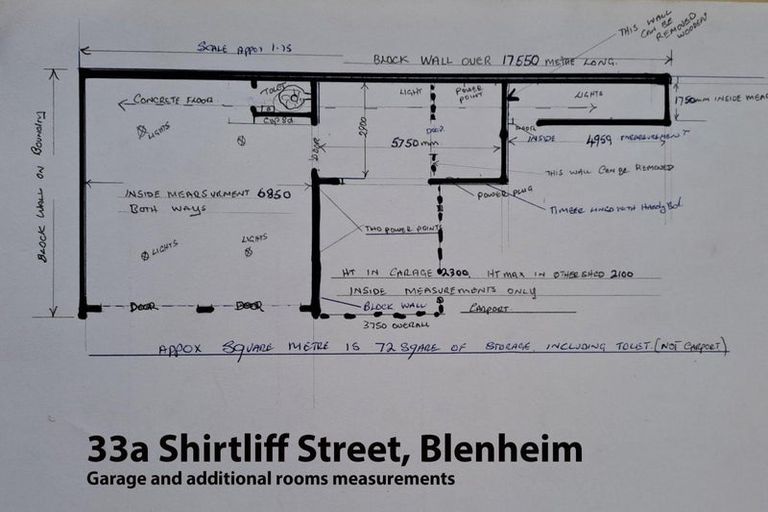 THIS WALL
CAN BE
REMOVED
WOODEN
SCALE APPOX 1-75
BLOCK WALL OVER 17550 METRE LONG.
BLOCK WALL ON BOUNDRY
CONCRETE FLOOR
TOLET
CUPBD
LIGHTS
LIGHT
POWER
POINT
LIGHTS
1750mm INSIDE MEA
DOOR
2900
5750mm
DOOR
INSIDE 4959 MEASUREMENT
THIS WALL CAN BE REMOVED
POWER PLUG
TIMBER LINED WITH
INSIDE MEARSURMENT 6850
BOTH WAYS
TWO POWER POINTS
LIGHTS
LIGHTS
HT IN GARAGE 2300, HT MAX IN OTHER SHED 2100
INSIDE MEASUREMENTS ONLY
BLOCK WALL
CARPORT
DOOR
DOOR
3750 OVERALL
APPOX SQUARE METRE IS 72 SQARE OF STORAGE, INCLUDING TOLET. (NOT CARPORT)
33a Shirtliff Street, Blenheim
Garage and additional rooms measurements